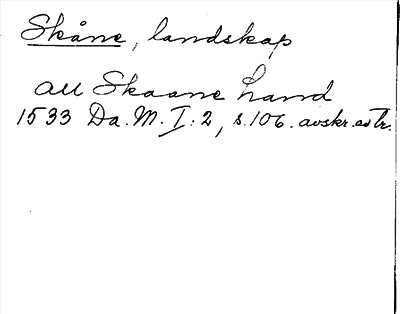 Skåne, landskap
all Skaane Land
1533 Da. M. I: 2, s. 106. avskr.